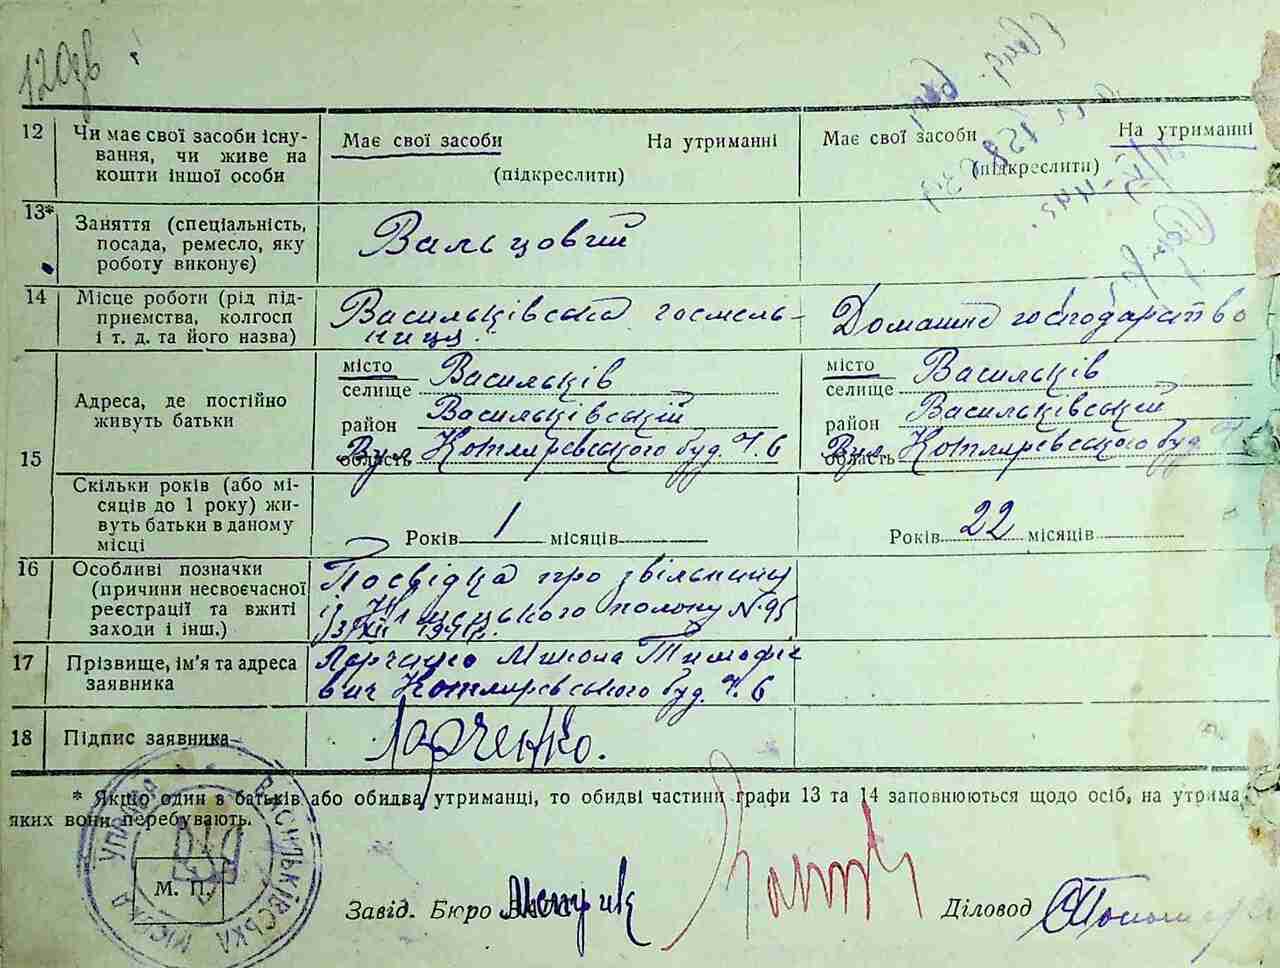 12
Чи має свої засоби існу-
вання, чи живе на
кошти іншої особи
Має свої засоби На утриманні
(підкреслити)
Має свої засоби На утриманні
(підкреслити)
13*
Заняття (спеціальність,
посада, ремесло, яку
роботу виконує)
Вальцовий
14
Місце роботи (рід під-
приємства, колгосп
і т. д. та його назва)
Васильківська госмель-
ниця.
Домашнє господарство
15
Адреса, де постійно
живуть батьки
місто
селище Васильків
район Васильківський
область Вул Котляревського буд. Ч. 6
місто
селище Васильків
район Васильківський
область Вул Котляревського буд.
Скільки років (або мі-
сяців до 1 року) жи-
вуть батьки в даному
місці
Років 1 місяців
Років 22 місяців
16
Особливі позначки
(причини несвоєчасної
реєстрації та вжиті
заходи і інш.)
Посвідка про звільнину
полону N. 95
17
Прізвище, ім'я та адреса
заявника
Ларченко Микола Тимофіє
вич Котляревського буд. Ч. 6
18
Підпис заявника
Ларченко.
* Якщо один з батьків або обидва утриманці, то обидві частини графи 13 та 14 заповнюються щодо осіб, на утрима
яких вони перебувають.
ВАСИЛЬКІВСЬКА МІСЬКА УПРАВА
М. П.
Завід. Бюро
Діловод